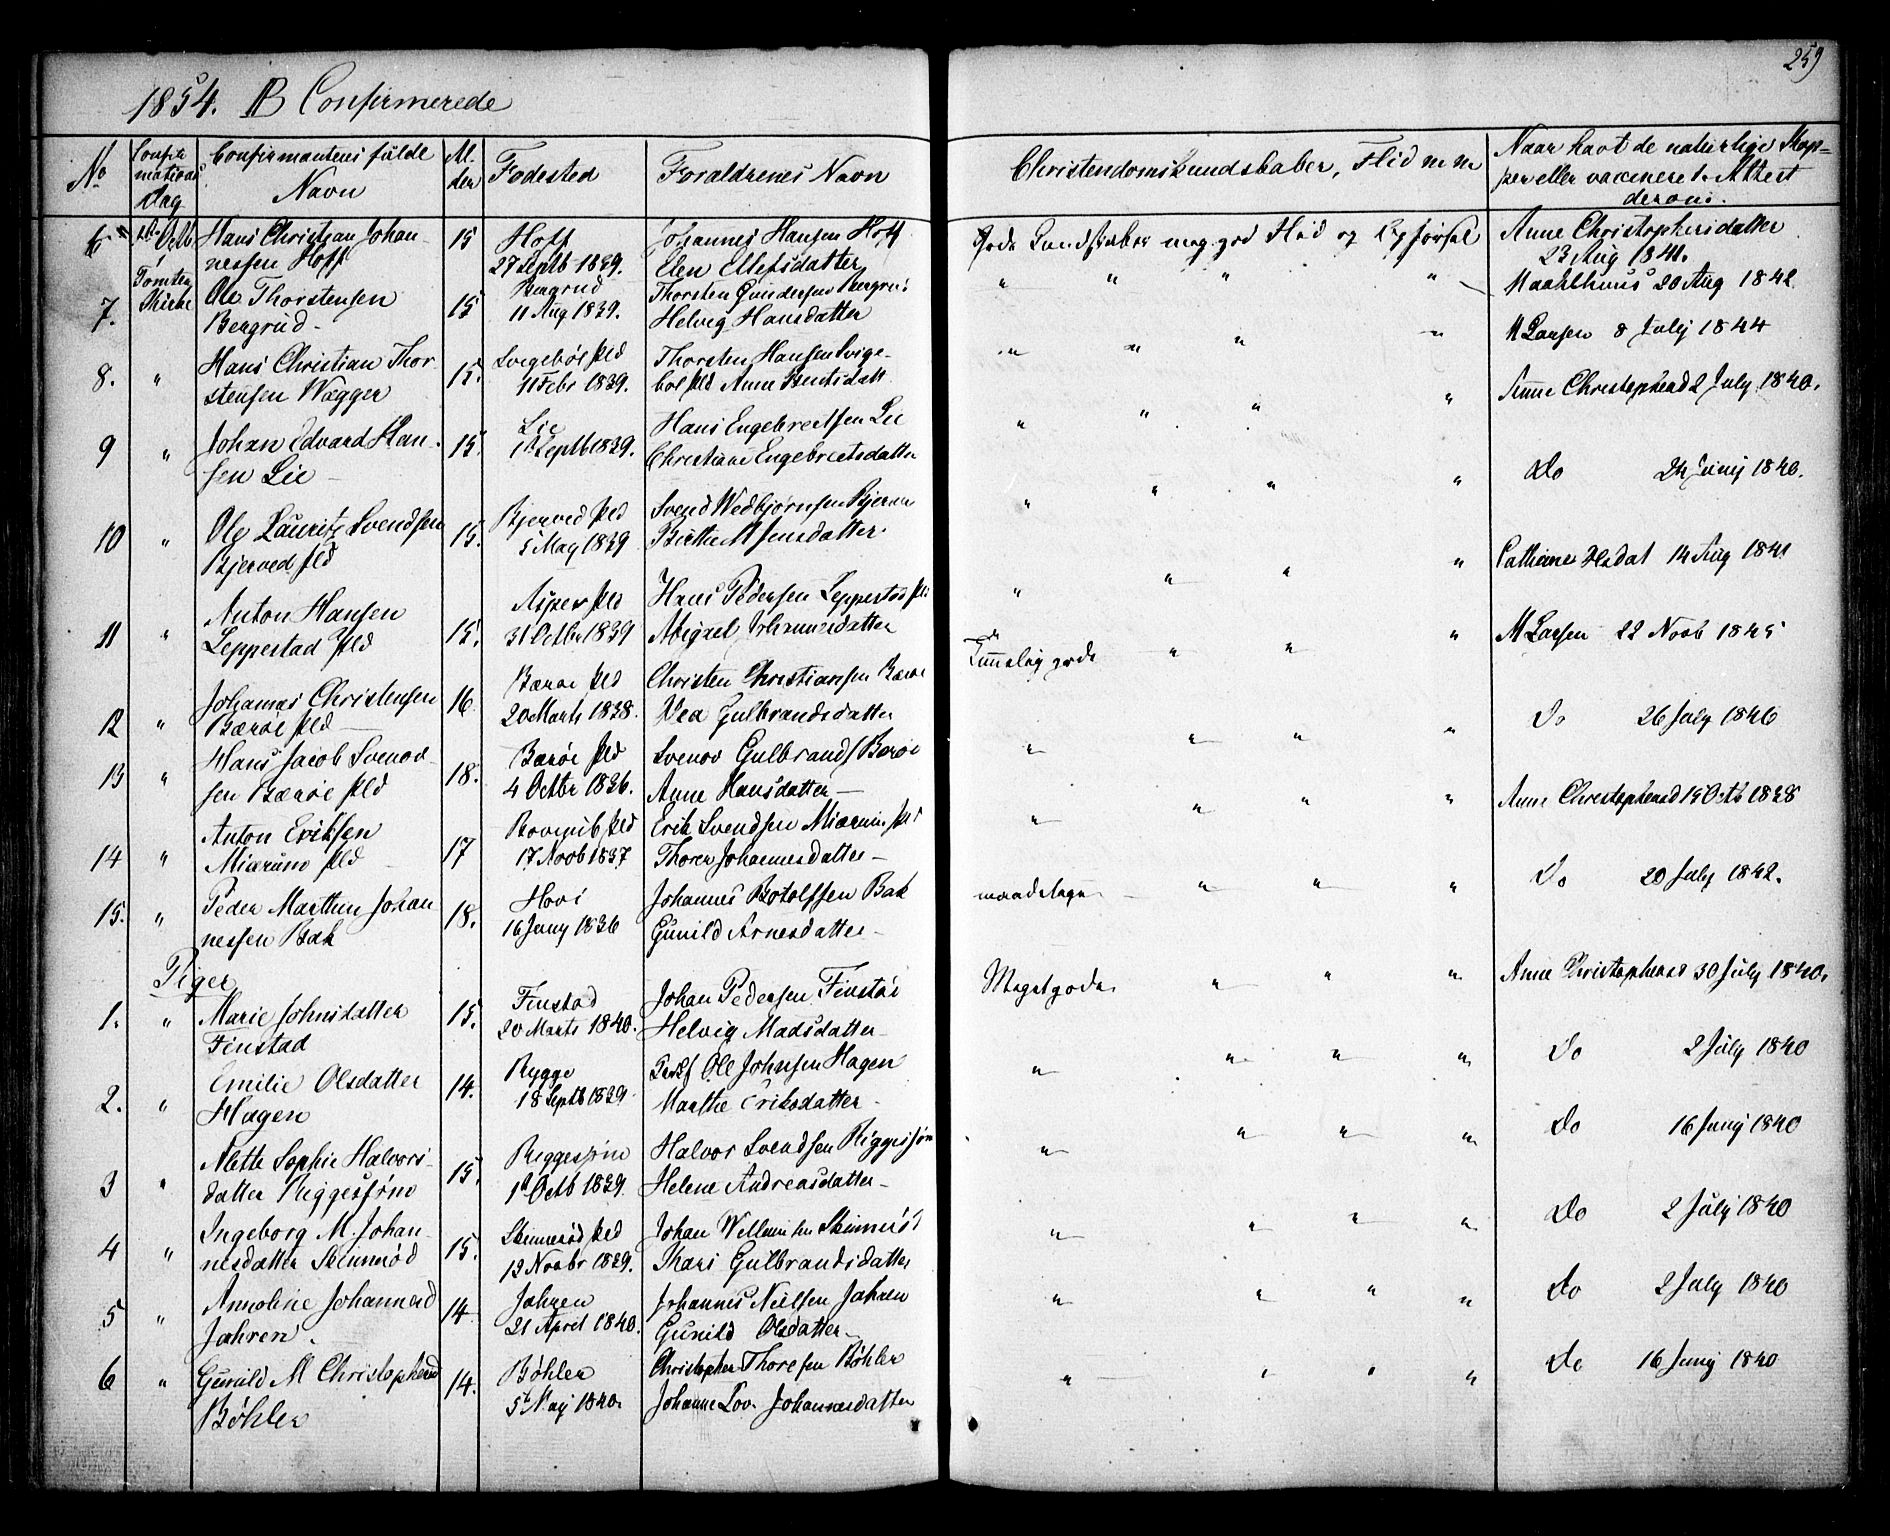 259
1854. B Confirmerede
No
Confir
mations
dag
Confirmantens fulde
Navn
Al-
der
Fødested
Forældrenes Navn
Christendomskundskaber, Flid m m
Naar havt de naturlige Kop-
per eller vaccineret. Attest
derom.
6 1st Octb Hans Christian Johan-
nessen Hoff 15 Hoff
27 Septb 1839. Johannes Hansen Hoff
Elen Ellefsdatter Gode Kundskaber meg. god Flid og Opførsel Anne Christophersdatter
23 Aug 1841.
7. Tomter
Kirke Ole Thorstensen
Bergrud 15 Bergrud
11 Aug 1839. Thorsten Gundersen Bergrud
Helvig Hansdatter " " " " Maahlhuus 20 Aug 1842
8. " Hans Christian Thor-
stensen Wagger 15. pld
11 Febr 1839. Thorsten Hansen
pld Anne Berntsdatt " " " " M Larsen 8 July 1844
9 " Johan Edvard Han-
sen Lie 15. Lie
1 Septb 1839. Hans Engebretsen Lie
Christiane Engebretsdatter " " " " Anne Christophersd 2 July 1840.
10 " Ole Lauritz Svendsen
Bjerved pld 15. Bjerved pld
5 May 1839 Svend Wedbjørnsen Bjerved
Birthe M Jensdatter " " " " Do 24 Junij 1840.
11 " Anton Hansen
Leppestad pld 15. Asper pld
31 Octbr 1839 Hans Pedersen Leppestad pld
Abigael Johannesdatter " " " " Cathrine Olsdat 14 Aug 1841
12 " Johannes Christensen
Bærøe pld 16 Bærøe pld
20 Marts 1838. Christen Christiansen Bærøe
Dea Gulbrandsdatter Temelig gode " " " M Larsen 22 Novb 1845
13 " Hans Jacob Svend-
sen Bærøe pld 18. Bærøe pld
4 Octbr 1836. Svend Gulbrands Bærøe
Anne Hansdatter " " " " Do 26 July 1846
14 " Anton Eriksen
pld 17 pld
17 Novb 1837 Erik Svendsen
Thorer Johannesdatter " " " " Anne Christophersd 19 Octb 1838
15. " Peder Marthin Johan
nessen Bak 18. Hovi
16 Juny 1836 Johannes Botolfsen Bak
Gunild Arnesdatter maadelige " " " Do 20 July 1842.
Piger
1. " Marie Johnsdatter
Finstad 15. Finstad
20 Marts 1840. Johan Pedersen Finstad
Helvig Madsdatter Meget gode " " " Anne Christophersd 30 July 1840.
2. " Emilie Olsdatter
Hagen 14. Rygge
18 Septb 1839 Ole Johnsen Hagen
Marthe Eriksdatter " " " " Do 2 July 1840
3 " Mette Sophie Halvors-
datter Riggesjøno 15. Riggesjøno
1 Octb 1839. Halvor Svendsen Riggesjøn
Helene Andreasdatter " " " " Do 16 Junij 1840
4 " Ingeborg M. Johan-
nesdatter Skinnerød 15. Skinnerød pld
12 Novbr 1839. Johan Skinnerød
Kari Gulbrandsdatter " " " " Do 2 Julij 1840
5 " Annoline Johannesd
Jahren 14 Jahren
21 April 1840. Johannes Nielsen Jahren
Gunild Olsdatter " " " " Do 2 July 1840
6 " Gunild M Christophersd
Bøhler 14. Bøhler
5 May 1840. Christopher Thoresen Bøhler
Johanne Lov. Johannesdatter " " " " Do 16 Junij 1840